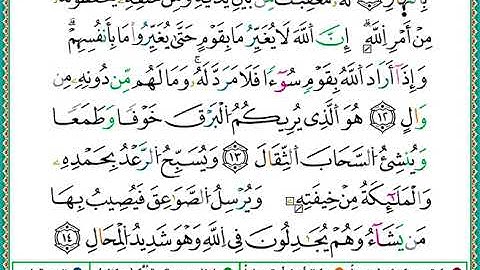 بِٱلنَّهَارِ لَهُۥ مُعَقِّبَٰتٌ مِّنۢ بَيْنِ يَدَيْهِ وَمِنْ خَلْفِهِۦ يَحْفَظُونَهُۥ
مِنْ أَمْرِ ٱللَّهِۗ إِنَّ ٱللَّهَ لَا يُغَيِّرُ مَا بِقَوْمٍ حَتَّىٰ يُغَيِّرُوا۟ مَا بِأَنفُسِهِمْۗ
وَإِذَآ أَرَادَ ٱللَّهُ بِقَوْمٍ سُوٓءًا فَلَا مَرَدَّ لَهُۥۚ وَمَا لَهُم مِّن دُونِهِۦ مِن
وَالٍ ١٢ هُوَ ٱلَّذِى يُرِيكُمُ ٱلْبَرْقَ خَوْفًا وَطَمَعًا
وَيُنشِئُ ٱلسَّحَابَ ٱلثِّقَالَ ١٣ وَيُسَبِّحُ ٱلرَّعْدُ بِحَمْدِهِۦ
وَٱلْمَلَٰٓئِكَةُ مِنْ خِيفَتِهِۦ وَيُرْسِلُ ٱلصَّوَٰعِقَ فَيُصِيبُ بِهَا
مَن يَشَآءُ وَهُمْ يُجَٰدِلُونَ فِى ٱللَّهِ وَهُوَ شَدِيدُ ٱلْمِحَالِ ١٤